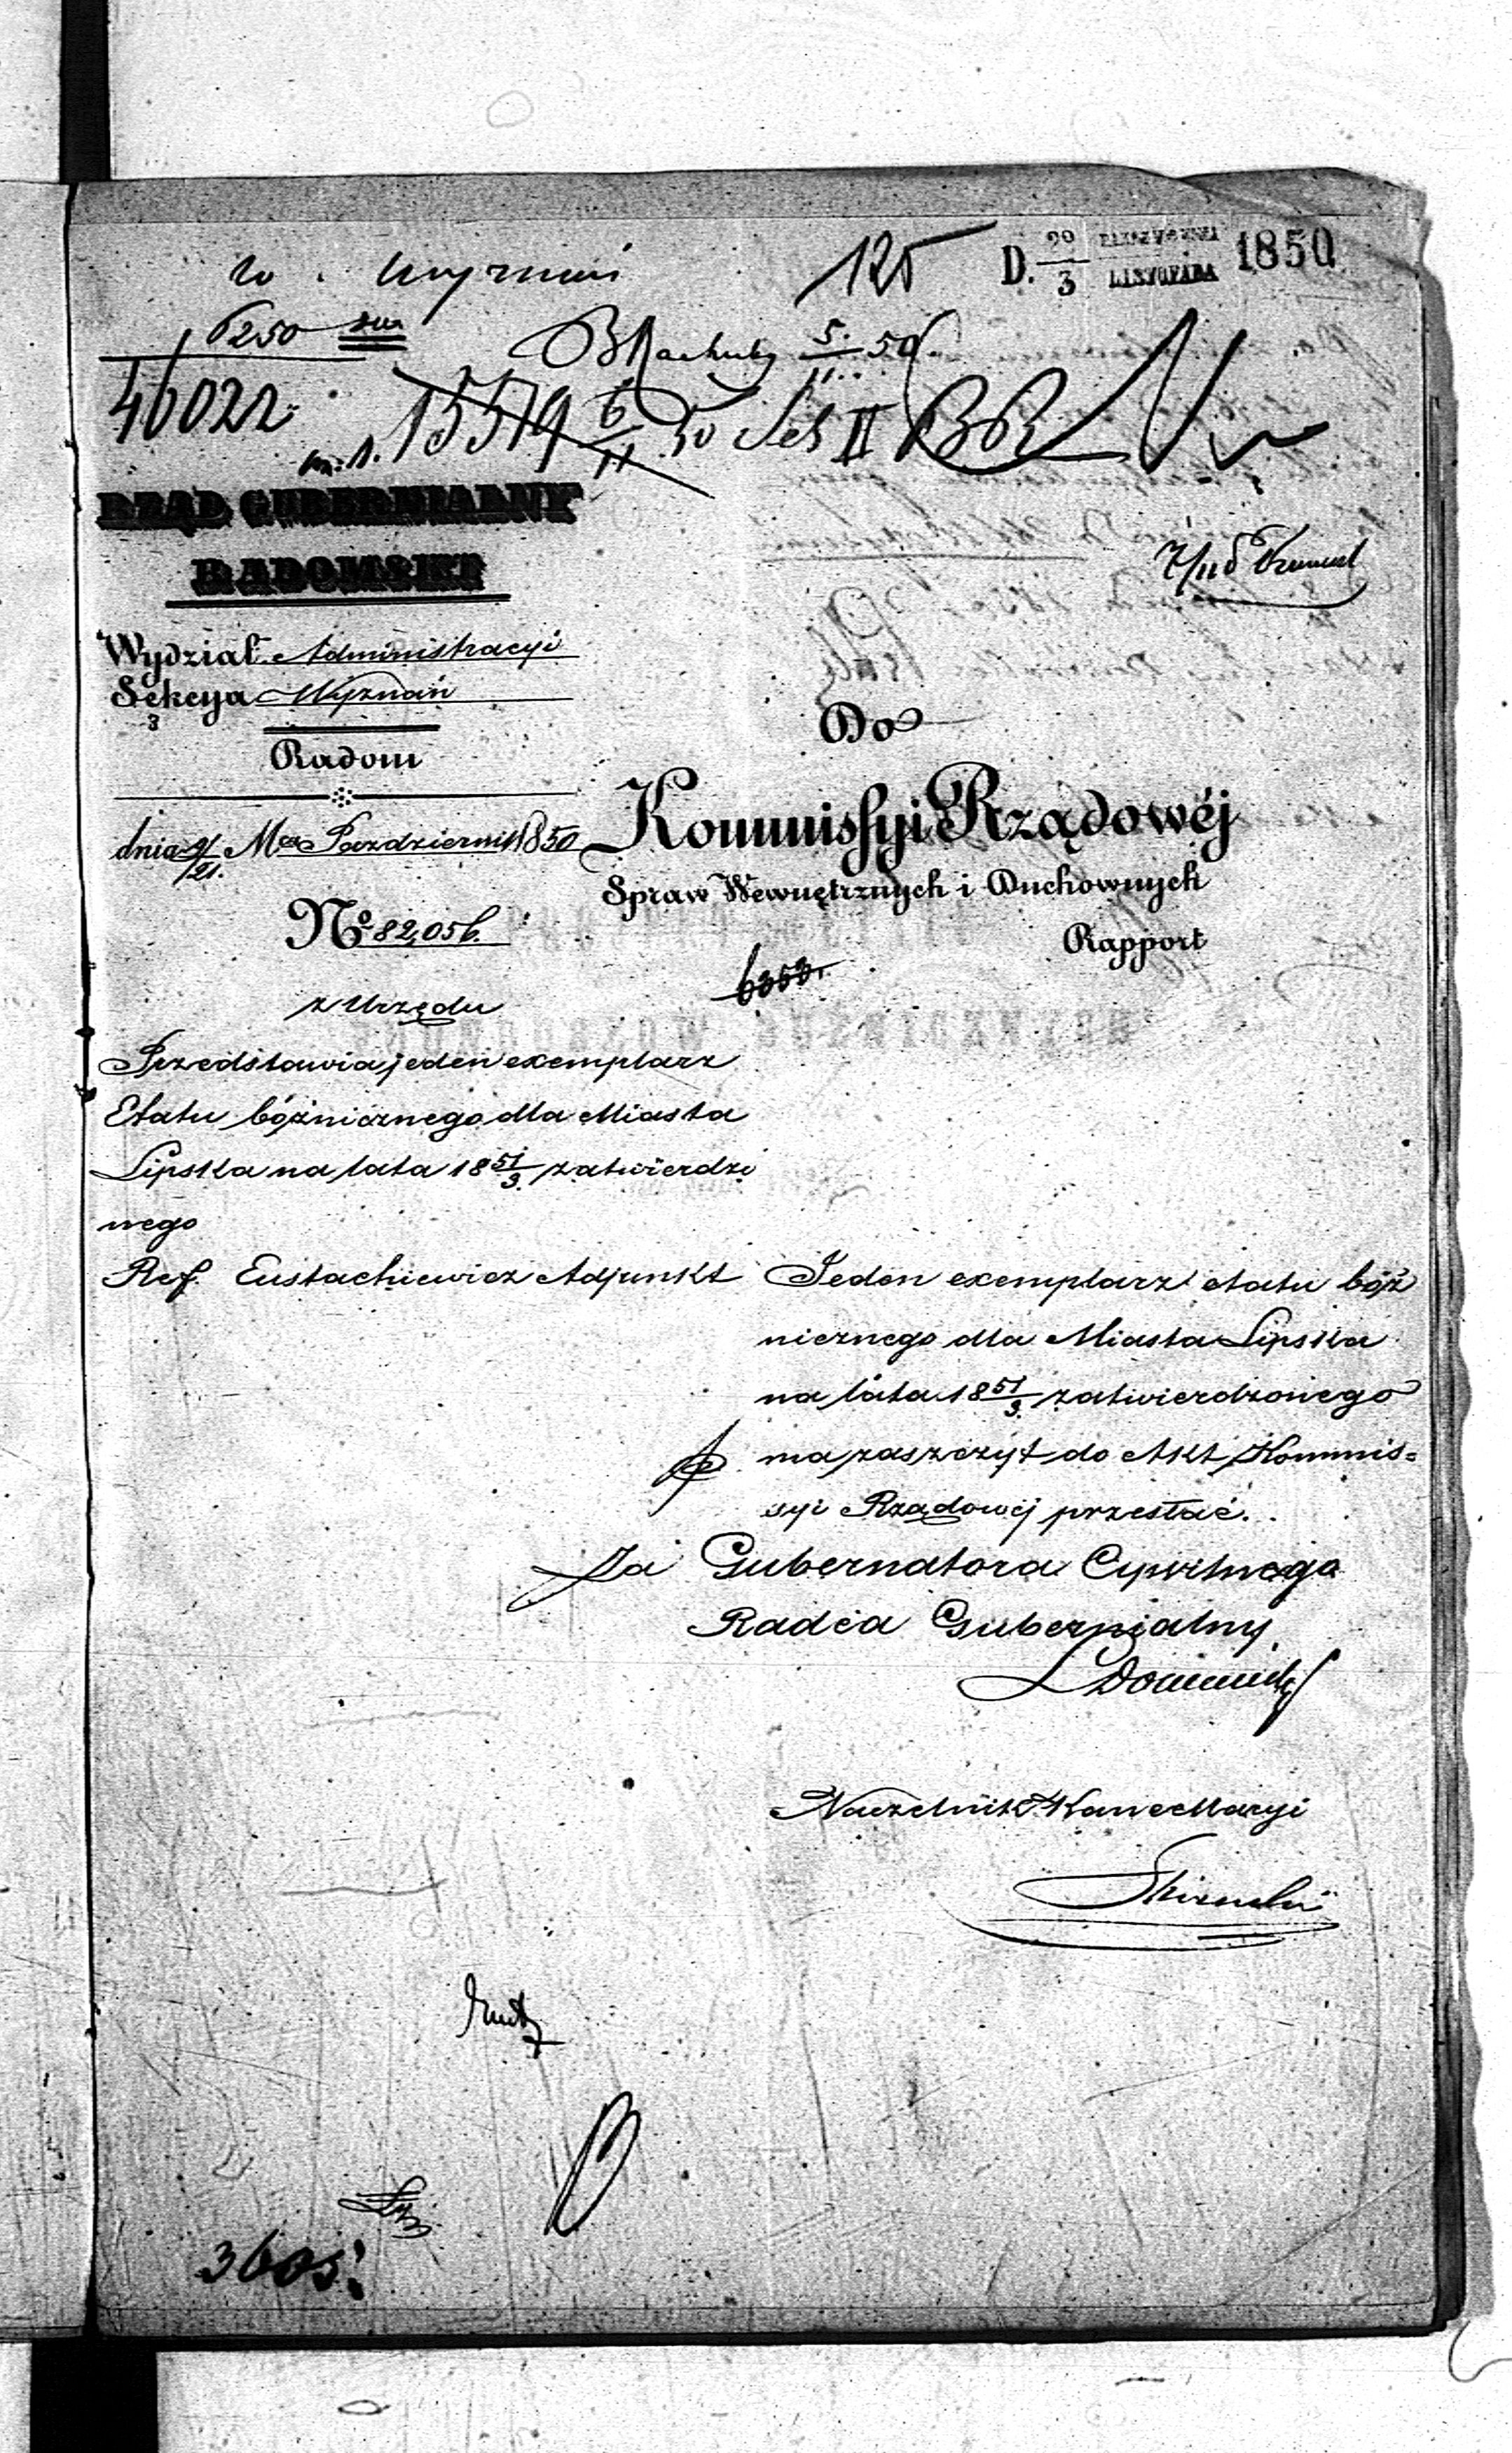 W. Wyznań
125
D. 20/3 PAŹDZIERNIKA LISTOPADA 1850
6250
BRachuby 5/11 50
46022
15579 6/11 50 Sek II BR
RZĄD GUBERNIALNY
RADOMSKI
Wydział Administracyi
Sekcya Wyznań
3
Radom
dnia 9/21 Mca Październik 1850
No 82,056.
z Urzędu
Przedstawia jeden exemplarz
Etatu bóżnicznego dla Miasta
Lipska na lata 18 51/3 zatwierdzo
nego
Ref. Eustachiewicz Adjunkt
Do
Kommissyi Rządowéj
Spraw Wewnętrznych i Duchownych
Rapport
6353.
Jeden exemplarz etatu bóż
nicznego dla Miasta Lipska
na lata 18 51/3 zatwierdzonego
ma zaszczyt do Akt Kommis=
syi Rządowej przesłać.
Za Gubernatora Cywilnego
Radca Gubernialny
Naczelnik Kancellaryi
3605.